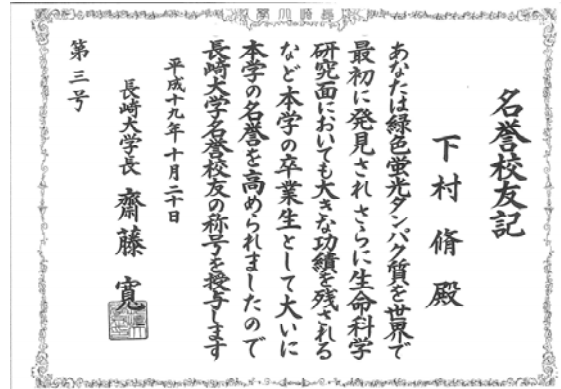 名誉校友記
下村脩殿
あなたは緑色蛍光タンパク質を世界で
最初に発見されさらに生命科学
研究面においても大きな功績を残される
など本学の卒業生として大いに
本学の名誉を高められましたので
長崎大学名誉校友の称号を授与します
平成十九年十月二十日
長崎大学長 齋藤寛
第三号